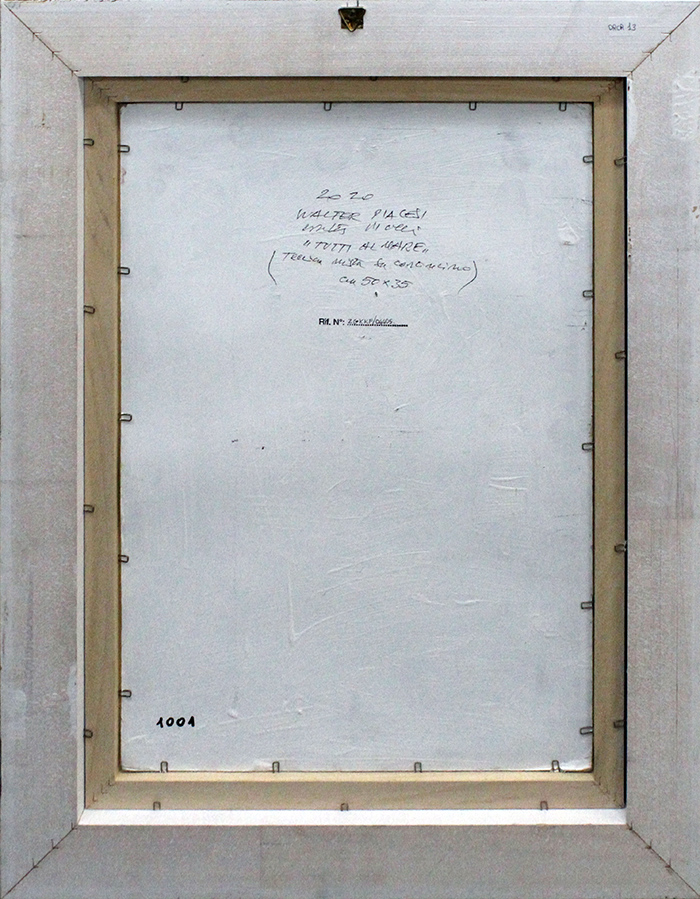 OBCR 13
2020
WALTER PIACESI
"TUTTI AL MARE"
(Tecnica mista su cartoncino)
cm 50x35
Rif. N°:
1001